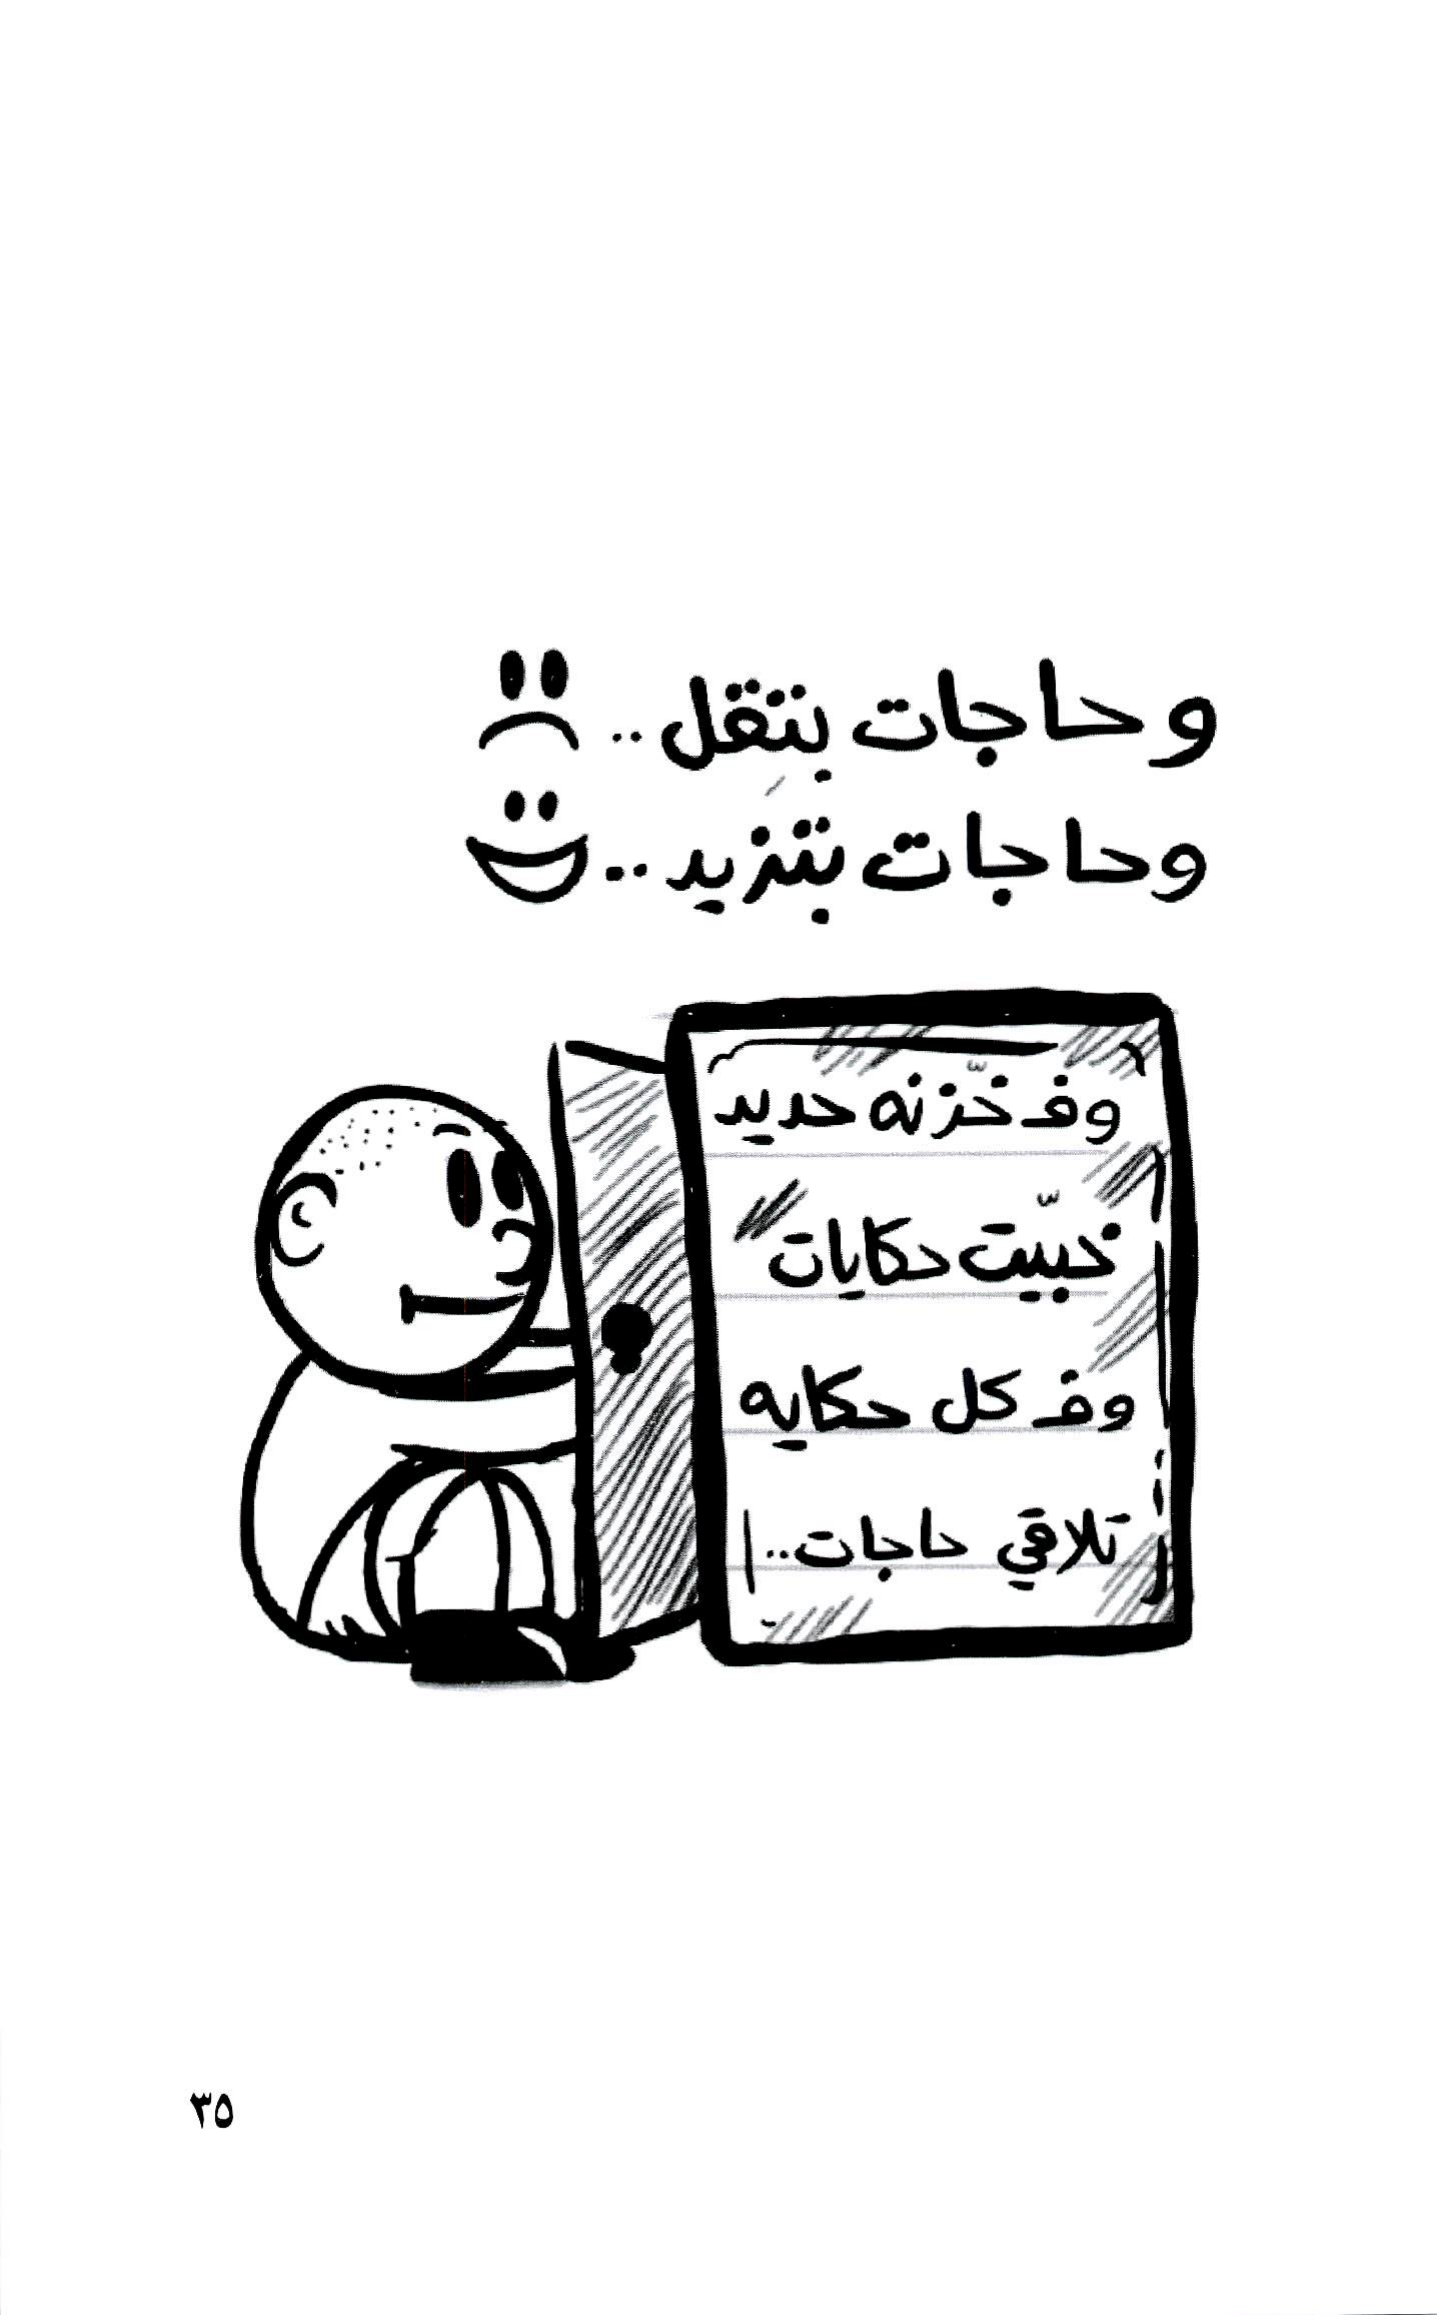 وحاجات بتِقل..
وحاجات بتزيد..
وف خّزنه حديد
خبّيت حكايات
وف كل حكايه
تلاقي حاجات..
٣٥